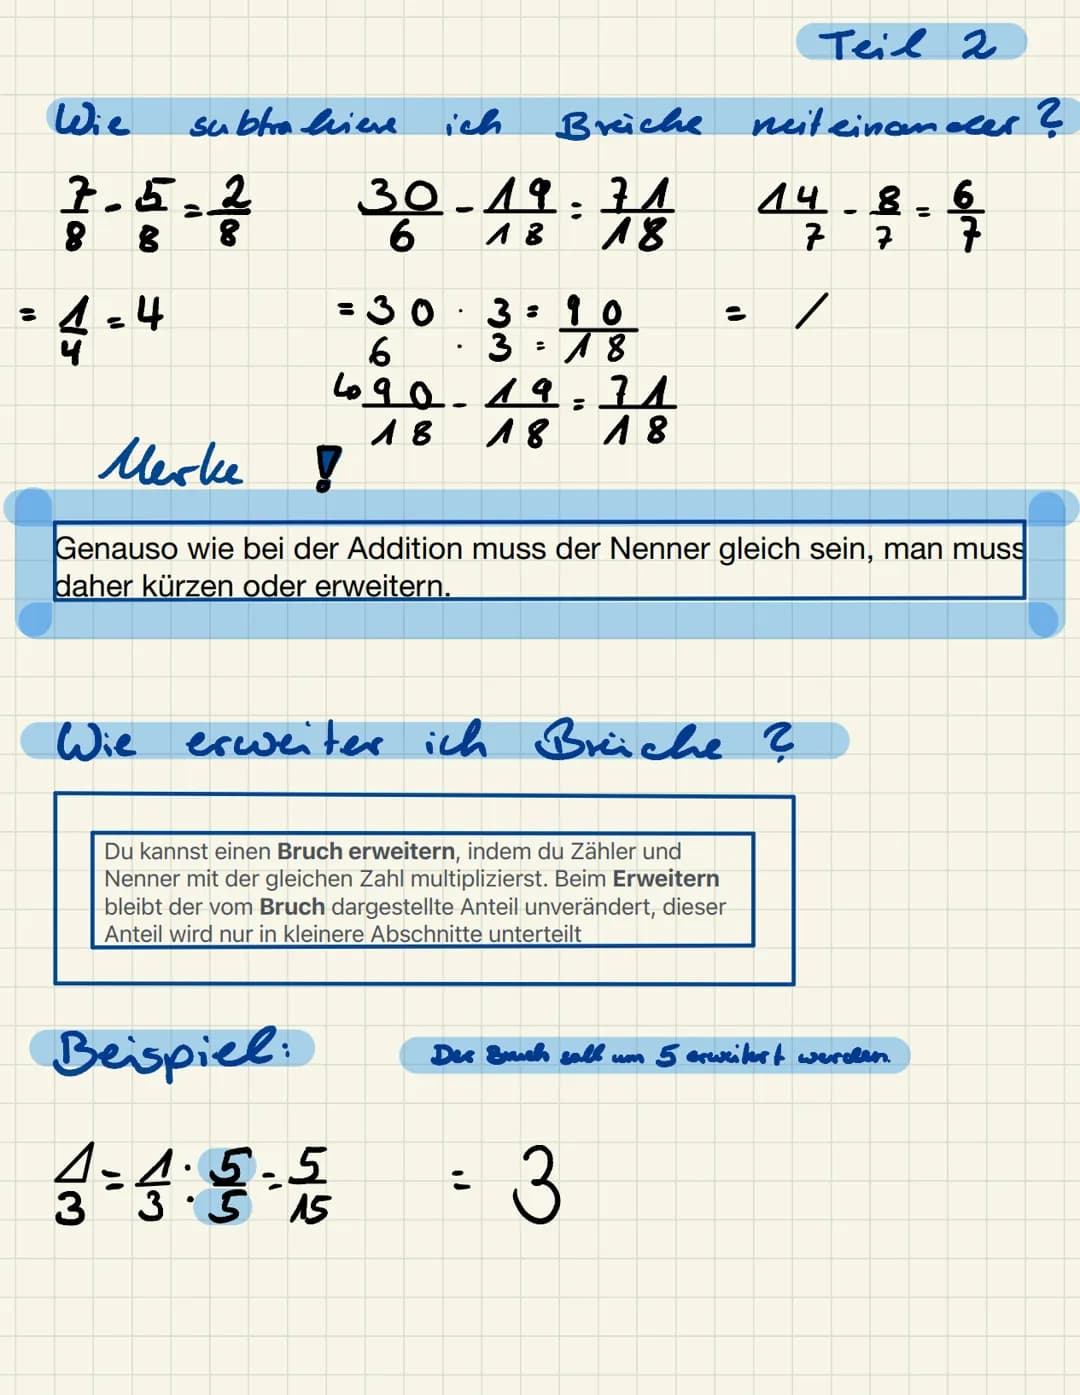 Teil 2
Wie subtrahiere ich Brüche miteinander ?
7/8 - 5/8 = 2/8   30/6 - 19/18 = 71/18   14/7 - 8/7 = 6/7
= 1/4 = 4   = 30/6 · 3/3 = 90/18   = /
↳ 90/18 - 19/18 = 71/18
Merke !
Genauso wie bei der Addition muss der Nenner gleich sein, man muss
daher kürzen oder erweitern.
Wie erweiter ich Brüche ?
Du kannst einen Bruch erweitern, indem du Zähler und
Nenner mit der gleichen Zahl multiplizierst. Beim Erweitern
bleibt der vom Bruch dargestellte Anteil unverändert, dieser
Anteil wird nur in kleinere Abschnitte unterteilt
Beispiel: Der Bruch soll um 5 erweitert werden.
1/3 = 1/3 · 5/5 = 5/15   = 3